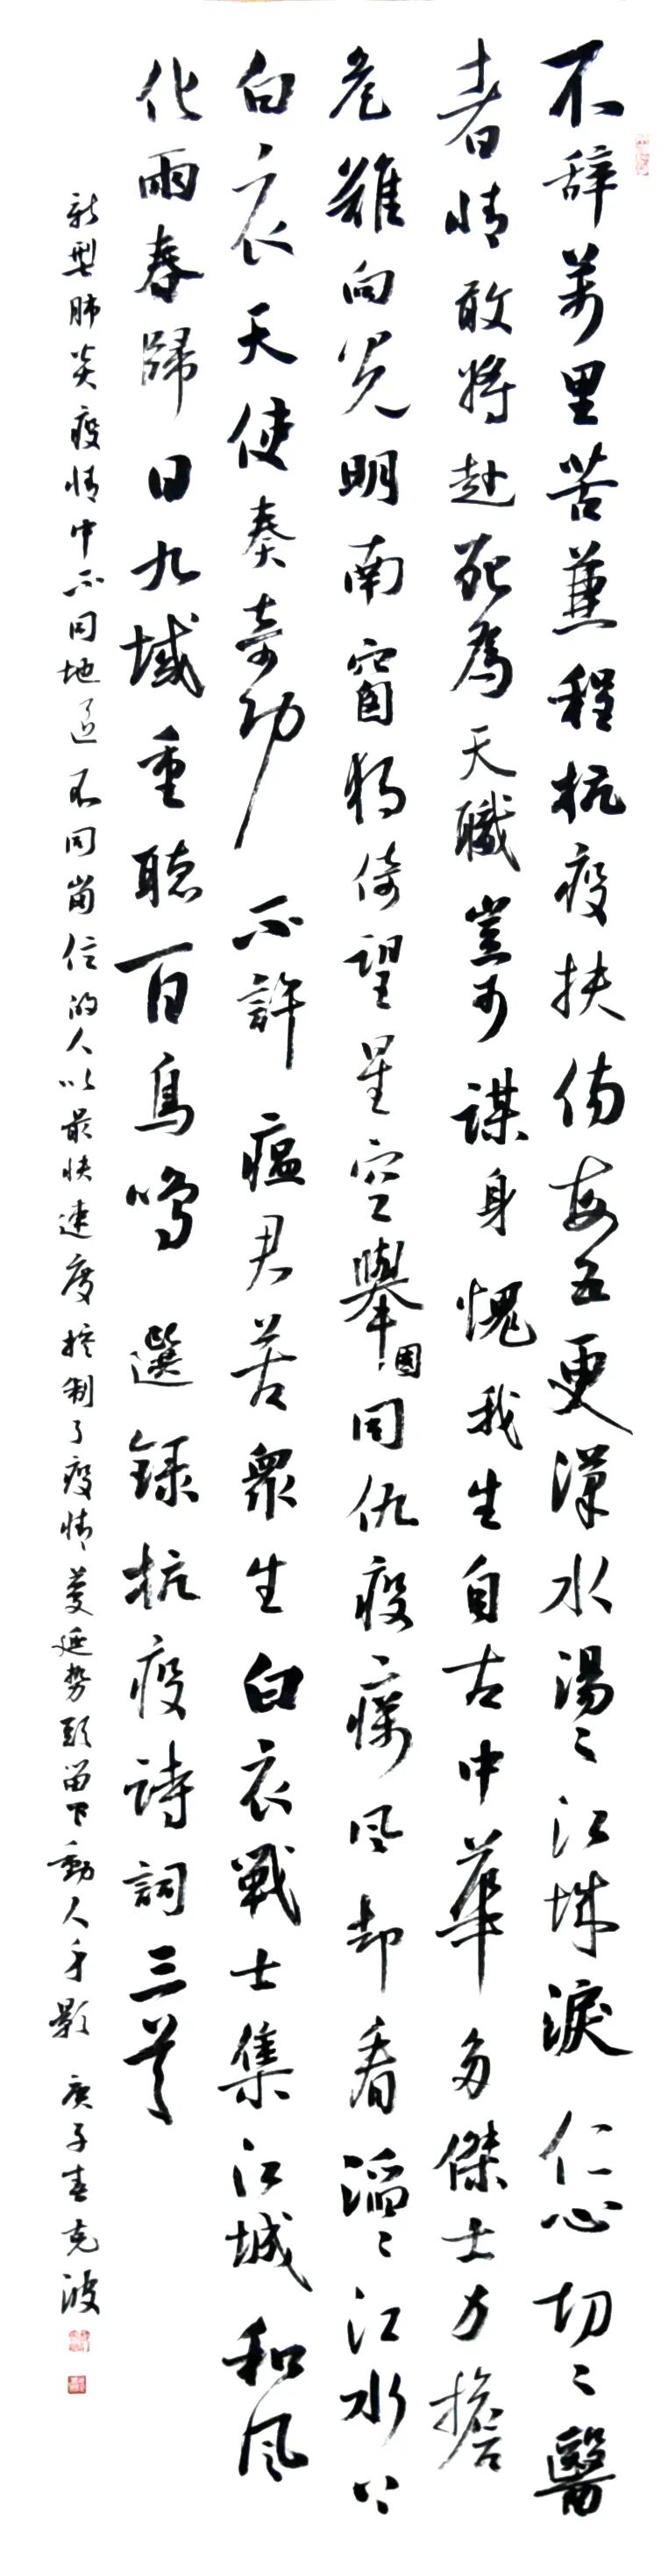 不辞萬里苦兼程抗疫扶傷每五更漢水湯々江城淚仁心切々醫
者情敢將赴死為天職豈可謀身愧我生自古中華多傑士力擔
危難向光明南窗獨倚望星空舉國同仇疫瘴風却看滔々江水上
白衣天使奏奇功不許瘟君苦衆生白衣戰士集江城和風
化雨春歸日九域重聽百鳥鳴選録抗疫詩詞三首
新型肺炎疫情中不同地區不同崗位的人以最快速度控制了疫情蔓延勢頭留下動人身影庚子春克波